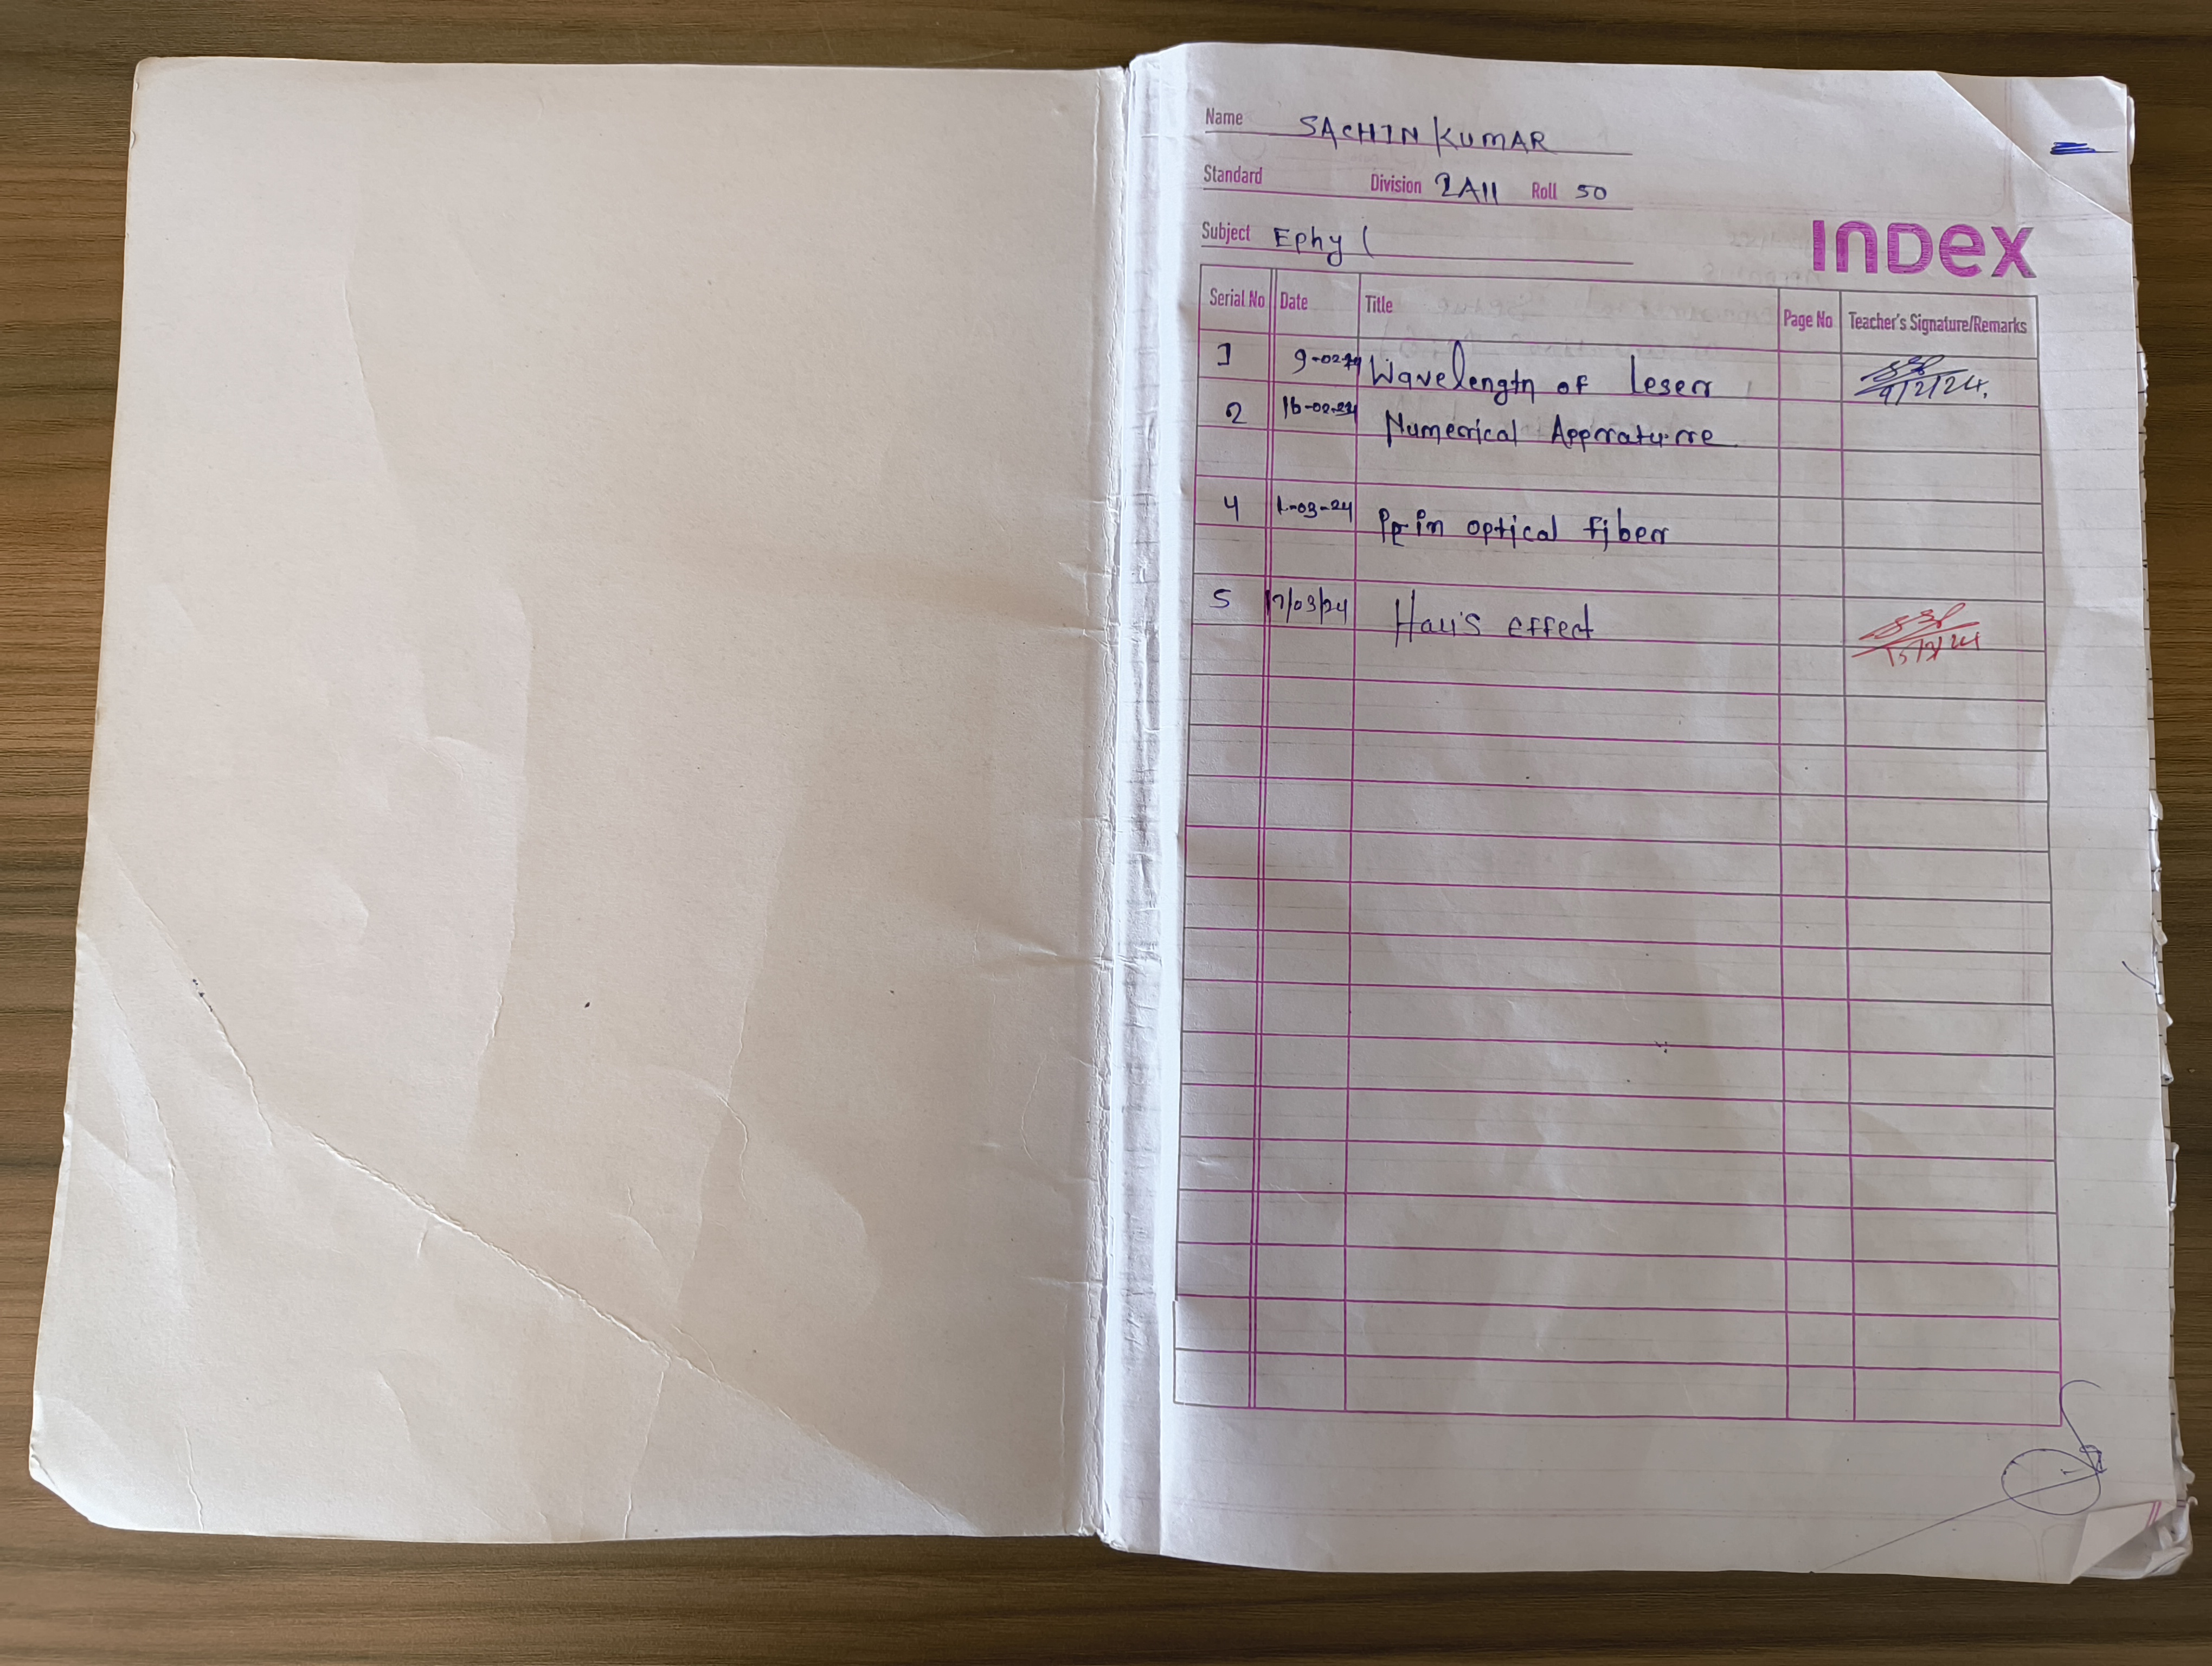 Name SACHIN KUMAR
Standard Division 2A11 Roll 50
Subject Ephy (
INDEX
Serial No Date Title Page No Teacher's Signature/Remarks
1 9-02-24 Wavelength of Leser 9/2/24.
2 16-02-24 Numerical Apprature
4 1-03-24 in optical fiber
5 17/03/24 Hall's effect
15/3/24